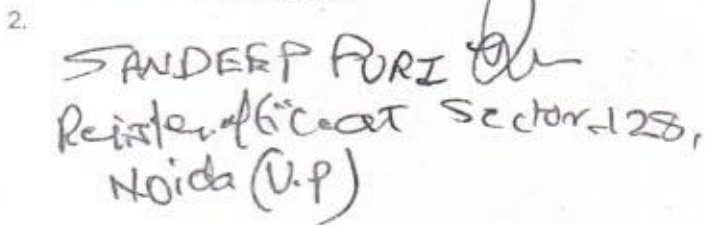 2.
SANDEEP PURI
Reister office at Sector-128,
Noida (U.P)